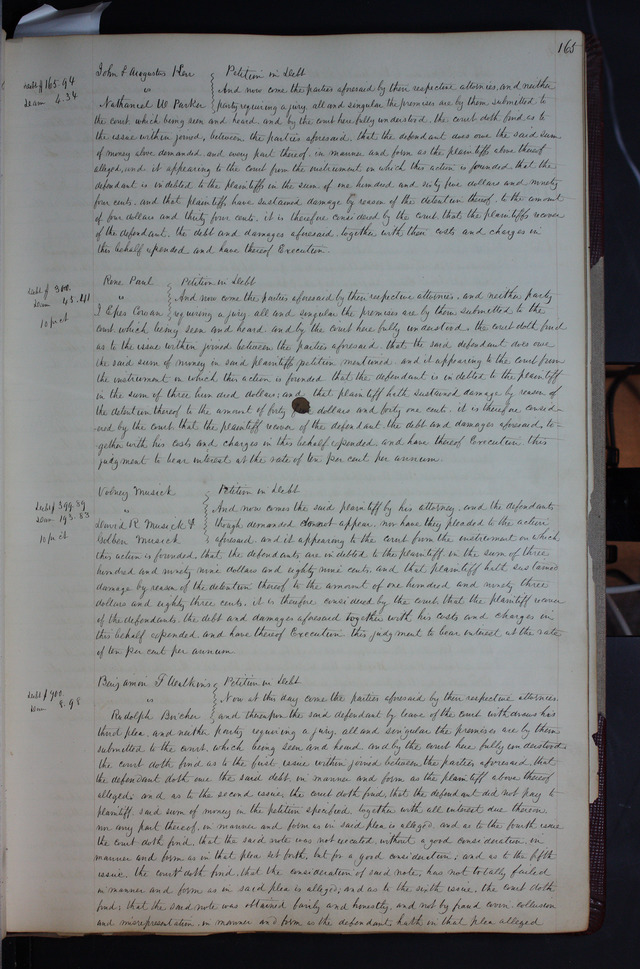 165
John & Augustus Kerr } Petition in Debt
debt $165.94
dam 4.34
vs } And now come the parties aforesaid by their respective attornies, and neither
Nathaniel W Parker } party requiring a jury, all and singular the premises are by them submitted to
the court, which being seen and heard, and by the court here fully understood, the court doth find as to
the issue within joined, between the parties aforesaid, that the defendant does owe the said sum
of money above demanded and every part thereof, in manner and form as the plaintiffs above thereof
alleged, and it appearing to the court from the instrument on which this action is founded that the
defendant is indebted to the plaintiffs in the sum of one hundred and sixty five dollars and ninety
four cents, and that plaintiffs have sustained damage by reason of the detention thereof, to the amount
of four dollars and thirty four cents, it is therefore considered by the court that the plaintiffs recover
of the defendant, the debt and damages aforesaid, together with their costs and charges in
this behalf expended and have thereof Execution.
Rene Paul } Petition in Debt
debt $300.
dam 45.41
10 pr ct
vs } And now come the parties aforesaid by their respective attornies, and neither party
J Epes Cowan } requiring a jury, all and singular the premises are by them submitted to the
court, which being seen and heard, and by the court here fully understood, the court doth find
as to the issue within joined between the parties aforesaid, that the said defendant does owe
the said sum of money in said plaintiffs petition mentioned, and it appearing to the court from
the instrument on which this action is founded that the defendant is indebted to the plaintiff
in the sum of three hundred dollars; and that plaintiff hath sustained damage by reason of
the detention thereof to the amount of forty dollars and forty one cents, it is therefore consid-
-ered by the court that the plaintiff recover of the defendant the debt and damages aforesaid, to-
gether with his costs and charges in this behalf expended and have thereof Execution this
judgment to bear interest at the rate of ten per cent per annum.
Volney Musick } Petition in Debt
debt $399.89
dam 193.83
10 pr ct
vs } And now comes the said plaintiff by his attorney, and the defendants
David R Musick & } though demanded do not appear, nor have they pleaded to the action
Musick } aforesaid, and it appearing to the court from the instrument on which
this action is founded, that the defendants are indebted to the plaintiff in the sum of three
hundred and ninety nine dollars and eighty nine cents, and that plaintiff hath sustained
damage by reason of the detention thereof to the amount of one hundred and ninety three
dollars and eighty three cents, it is therefore considered by the court that the plaintiff recover
of the defendants, the debt and damages aforesaid together with his costs and charges in
this behalf expended and have thereof Execution this judgment to bear interest at the rate
of ten per cent per annum
Benjamin F Watkins } Petition in Debt
debt $700.
dam 8.98
vs } Now at this day come the parties aforesaid by their respective attornies,
Rudolph Bircher } and thereupon the said defendant by leave of the court withdraws his
third plea, and neither party requiring a jury, all and singular the premises are by them
submitted to the court, which being seen and heard and by the court here fully understood,
the court doth find as to the first issue within joined between the parties aforesaid, that
the defendant doth owe the said debt, in manner and form as the plaintiff above thereof
alleged; and as to the second issue, the court doth find, that the defendant did not pay to
plaintiff, said sum of money in the petition specified, together with all interest due thereon
nor any part thereof, in manner and form as in said plea is alleged, and as to the fourth issue
the court doth find, that the said note was not executed, without a good consideration in
manner and form as in that plea set forth, but for a good consideration; and as to the fifth
issue, the court doth find, that the consideration of said note, has not totally failed
in manner and form as in said plea is alleged; and as to the sixth issue, the court doth
find, that the said note was obtained fairly and honestly, and not by fraud covin, collusion
and misrepresentation, in manner and form as the defendant, hath in that plea alleged